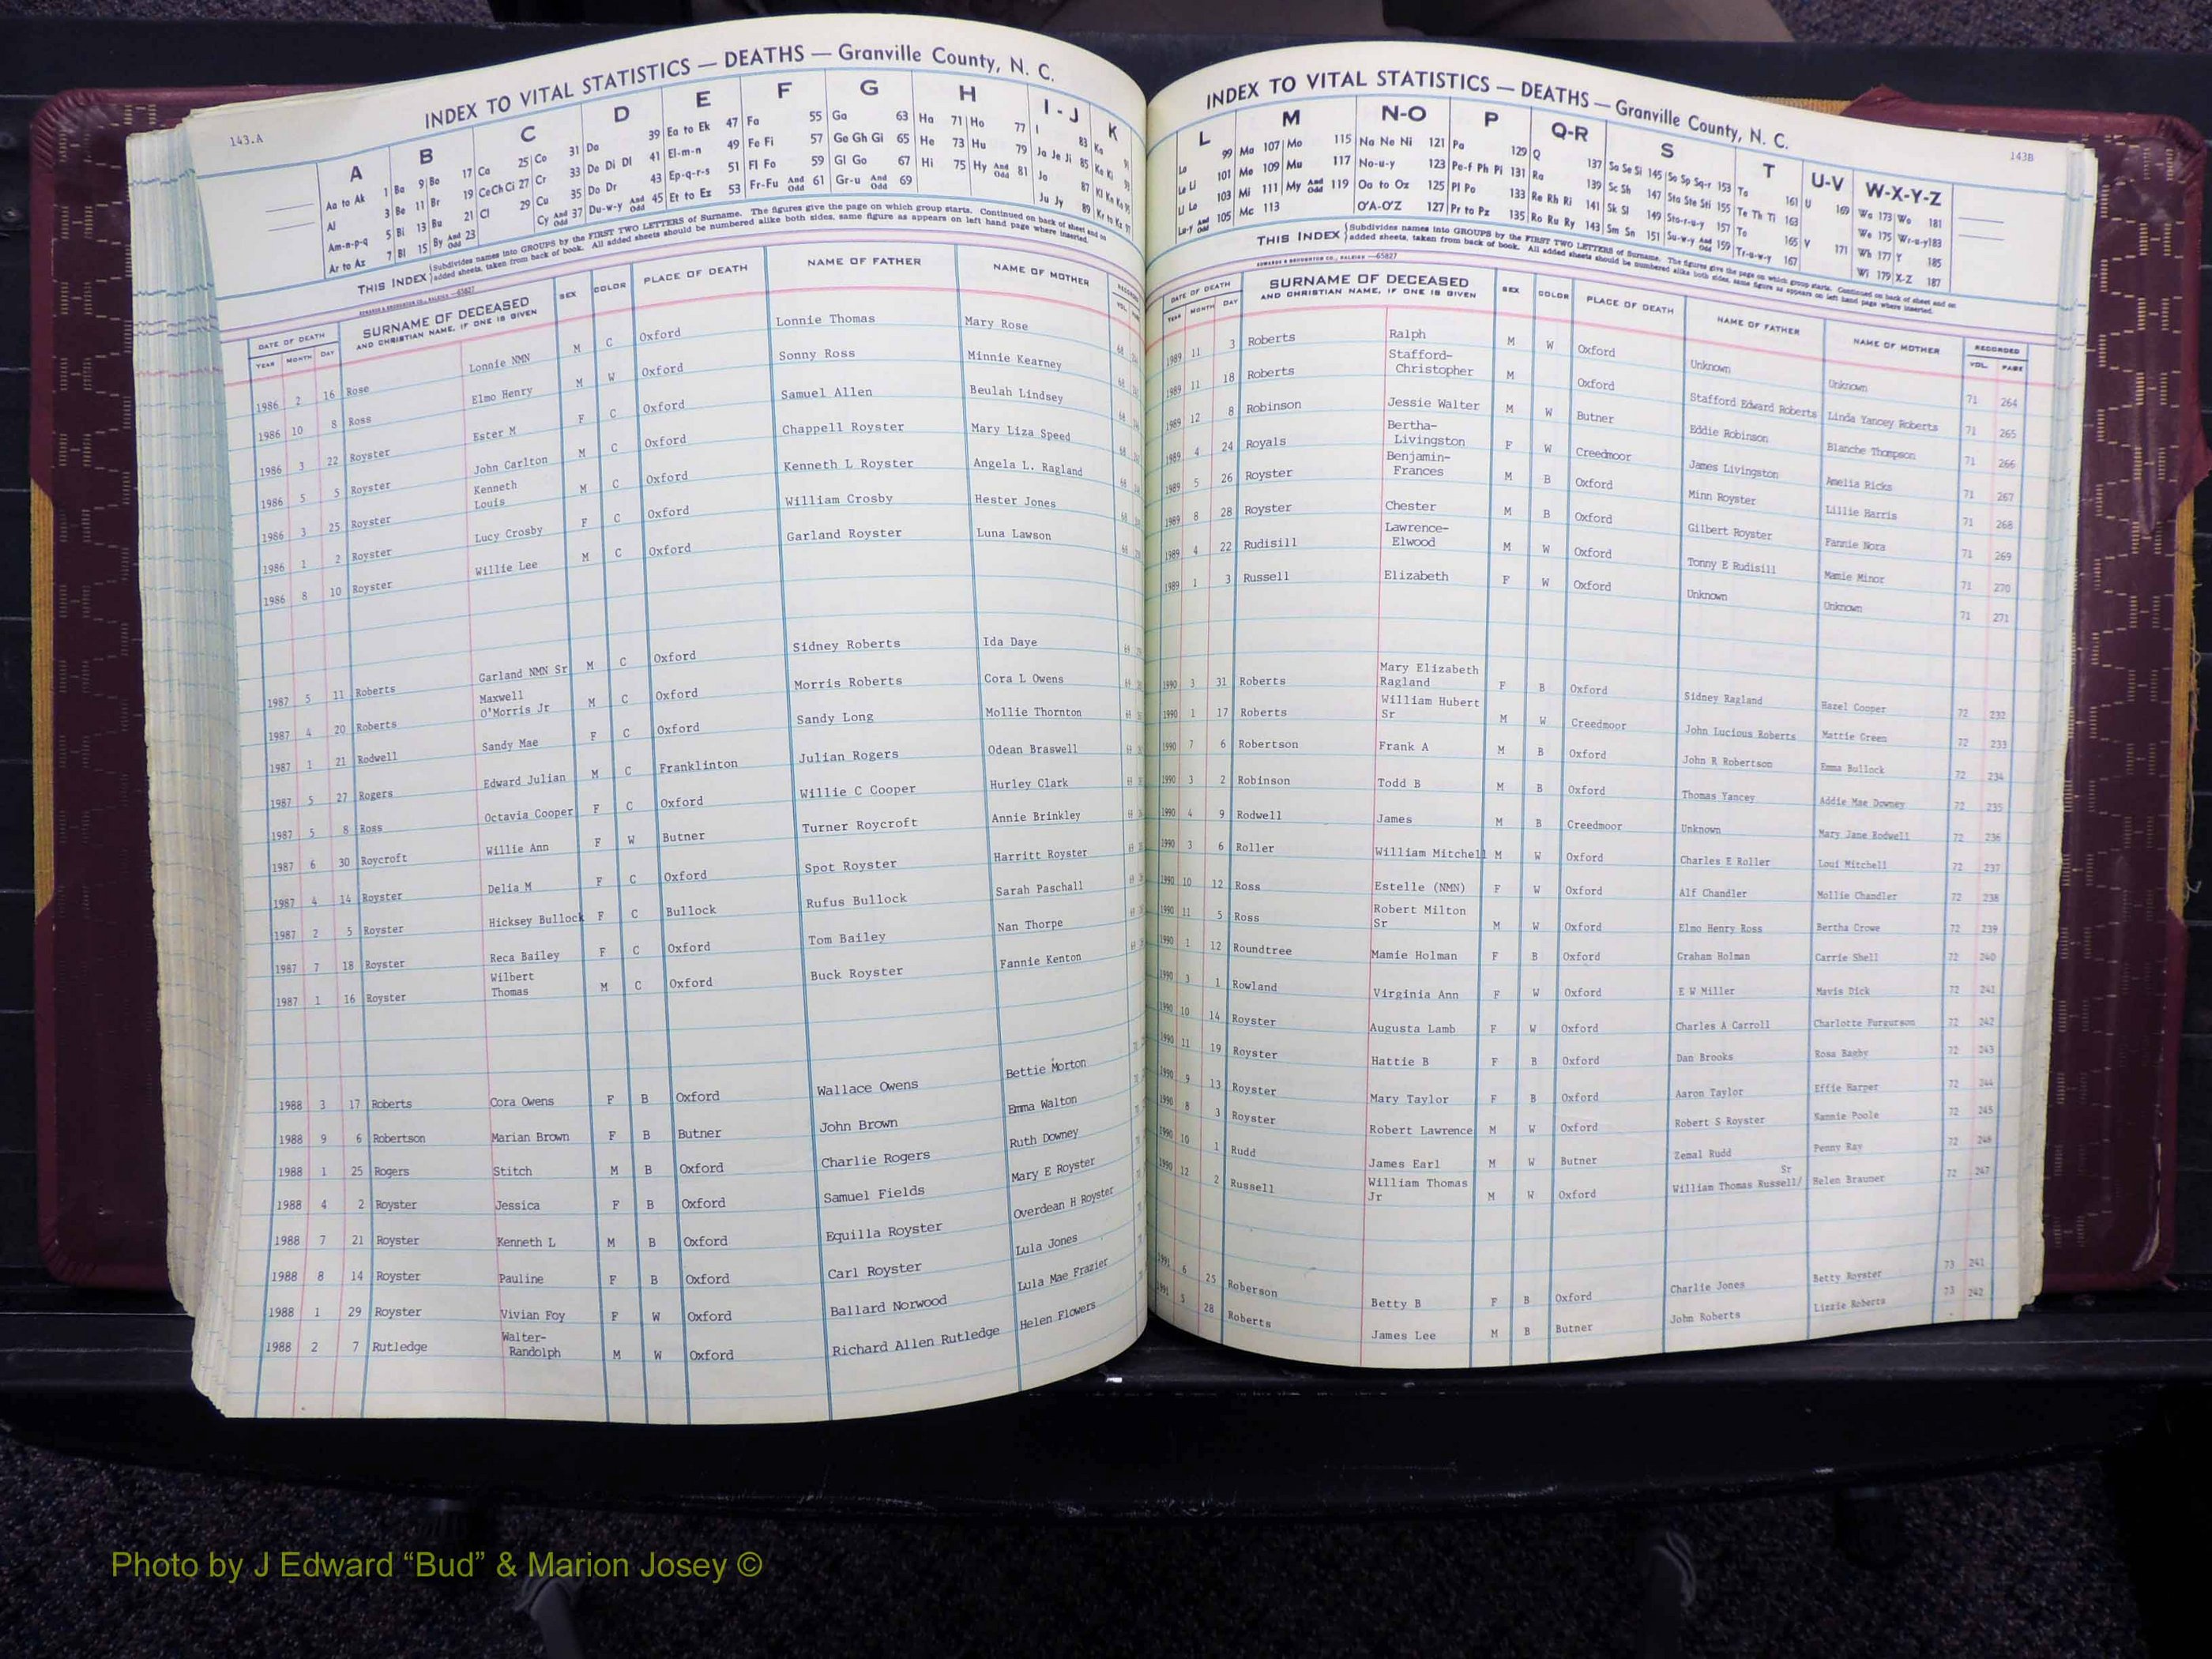 143.A
INDEX TO VITAL STATISTICS — DEATHS — Granville County, N. C.
A B C D E F G H I - J K
Aa to Ak 1 Ba 9 Bo 17 Ca 25 Co 31 Da 39 Ea to Ek 47 Fa 55 Ga 63 Ha 71 Ho 77 I 83 Ka 91
Al 3 Be 11 Br 19 Ce Ch Ci 27 Cr 33 De Di Dl 41 El-m-n 49 Fe Fi 57 Ge Gh Gi 65 He 73 Hu 79 Ja Je Ji 85 Ke Ki 93
Am-n-p-q 5 Bi 13 Bu 21 Cl 29 Cu 35 Do Dr 43 Ep-q-r-s 51 Fl Fo 59 Gl Go 67 Hi 75 Hy And Odd 81 Jo 87 Kl Kn Ko 95
Ar to Az 7 Bl 15 By And Odd 23 Cy And Odd 37 Du-w-y And Odd 45 Et to Ez 53 Fr-Fu And Odd 61 Gr-u And Odd 69 Ju Jy 89 Kr to Kz 97
THIS INDEX Subdivides names into GROUPS by the FIRST TWO LETTERS of Surname. The figures give the page on which group starts. Continued on back of sheet and on
added sheets, taken from back of book. All added sheets should be numbered alike both sides, same figure as appears on left hand page where inserted.
EDWARDS & BROUGHTON CO., RALEIGH —65827
DATE OF DEATH YEAR MONTH DAY SURNAME OF DECEASED AND CHRISTIAN NAME, IF ONE IS GIVEN SEX COLOR PLACE OF DEATH NAME OF FATHER NAME OF MOTHER
1986 2 16 Rose Lonnie NMN M C Oxford Lonnie Thomas Mary Rose
1986 10 8 Ross Elmo Henry M W Oxford Sonny Ross Minnie Kearney
1986 3 22 Royster Ester M F C Oxford Samuel Allen Beulah Lindsey
1986 5 5 Royster John Carlton M C Oxford Chappell Royster Mary Liza Speed
1986 3 25 Royster Kenneth Louis M C Oxford Kenneth L Royster Angela L. Ragland
1986 1 2 Royster Lucy Crosby F C Oxford William Crosby Hester Jones
1986 8 10 Royster Willie Lee M C Oxford Garland Royster Luna Lawson
1987 5 11 Roberts Garland NMN Sr M C Oxford Sidney Roberts Ida Daye
1987 4 20 Roberts Maxwell O'Morris Jr M C Oxford Morris Roberts Cora L Owens
1987 1 21 Rodwell Sandy Mae F C Oxford Sandy Long Mollie Thornton
1987 5 27 Rogers Edward Julian M C Franklinton Julian Rogers Odean Braswell
1987 5 8 Ross Octavia Cooper F C Oxford Willie C Cooper Hurley Clark
1987 6 30 Roycroft Willie Ann F W Butner Turner Roycroft Annie Brinkley
1987 4 14 Royster Delia M F C Oxford Spot Royster Harritt Royster
1987 2 5 Royster Hicksey Bullock F C Bullock Rufus Bullock Sarah Paschall
1987 7 18 Royster Reca Bailey F C Oxford Tom Bailey Nan Thorpe
1987 1 16 Royster Wilbert Thomas M C Oxford Buck Royster Fannie Kenton
1988 3 17 Roberts Cora Owens F B Oxford Wallace Owens Bettie Morton
1988 9 6 Robertson Marian Brown F B Butner John Brown Emma Walton
1988 1 25 Rogers Stitch M B Oxford Charlie Rogers Ruth Downey
1988 4 2 Royster Jessica F B Oxford Samuel Fields Mary E Royster
1988 7 21 Royster Kenneth L M B Oxford Equilla Royster Overdean H Royster
1988 8 14 Royster Pauline F B Oxford Carl Royster Lula Jones
1988 1 29 Royster Vivian Foy F W Oxford Ballard Norwood Lula Mae Frazier
1988 2 7 Rutledge Walter- Randolph M W Oxford Richard Allen Rutledge Helen Flowers
INDEX TO VITAL STATISTICS — DEATHS — Granville County, N. C.
143B
L M N-O P Q-R S T U-V W-X-Y-Z
La 99 Ma 107 Mo 115 Na Ne Ni 121 Pa 129 Q 137 Sa Se Si 145 So Sp Sq-r 153 Ta 161 U 169 Wa 173 Wo 181
Le Li 101 Me 109 Mu 117 No-u-y 123 Pe-f Ph Pi 131 Ra 139 Sc Sh 147 Sta Ste Sti 155 Te Th Ti 163 We 175 Wr-u-y 183
Ll Lo 103 Mi 111 My And Odd 119 Oa to Oz 125 Pl Po 133 Re Rh Ri 141 Sk Sl 149 Sto-r-u-y 157 To 165 V 171 Wh 177 Y 185
Lu-y And Odd 105 Mc 113 O'A-O'Z 127 Pr to Pz 135 Ro Ru Ry 143 Sm Sn 151 Su-w-y And Odd 159 Tr-u-w-y 167 Wi 179 X-Z 187
THIS INDEX Subdivides names into GROUPS by the FIRST TWO LETTERS of Surname. The figures give the page on which group starts. Continued on back of sheet and on
added sheets, taken from back of book. All added sheets should be numbered alike both sides, same figure as appears on left hand page where inserted.
EDWARDS & BROUGHTON CO., RALEIGH —65827
DATE OF DEATH YEAR MONTH DAY SURNAME OF DECEASED AND CHRISTIAN NAME, IF ONE IS GIVEN SEX COLOR PLACE OF DEATH NAME OF FATHER NAME OF MOTHER RECORDED VOL. PAGE
1989 11 3 Roberts Ralph M W Oxford Unknown Unknown 71 264
1989 11 18 Roberts Stafford- Christopher M Oxford Stafford Edward Roberts Linda Yancey Roberts 71 265
1989 12 8 Robinson Jessie Walter M W Butner Eddie Robinson Blanche Thompson 71 266
1989 4 24 Royals Bertha- Livingston F W Creedmoor James Livingston Amelia Ricks 71 267
1989 5 26 Royster Benjamin- Frances M B Oxford Minn Royster Lillie Harris 71 268
1989 8 28 Royster Chester M B Oxford Gilbert Royster Fannie Nora 71 269
1989 4 22 Rudisill Lawrence- Elwood M W Oxford Tonny E Rudisill Mamie Minor 71 270
1989 1 3 Russell Elizabeth F W Oxford Unknown Unknown 71 271
1990 3 31 Roberts Mary Elizabeth Ragland F B Oxford Sidney Ragland Hazel Cooper 72 232
1990 1 17 Roberts William Hubert Sr M W Creedmoor John Lucious Roberts Mattie Green 72 233
1990 7 6 Robertson Frank A M B Oxford John R Robertson Emma Bullock 72 234
1990 3 2 Robinson Todd B M B Oxford Thomas Yancey Addie Mae Downey 72 235
1990 4 9 Rodwell James M B Creedmoor Unknown Mary Jane Rodwell 72 236
1990 3 6 Roller William Mitchell M W Oxford Charles E Roller Loui Mitchell 72 237
1990 10 12 Ross Estelle (NMN) F W Oxford Alf Chandler Mollie Chandler 72 238
1990 11 5 Ross Robert Milton Sr M W Oxford Elmo Henry Ross Bertha Crowe 72 239
1990 1 12 Roundtree Mamie Holman F B Oxford Graham Holman Carrie Shell 72 240
1990 3 1 Rowland Virginia Ann F W Oxford E W Miller Mavis Dick 72 241
1990 10 14 Royster Augusta Lamb F W Oxford Charles A Carroll Charlotte Furgurson 72 242
1990 11 19 Royster Hattie B F B Oxford Dan Brooks Rosa Bagby 72 243
1990 9 13 Royster Mary Taylor F B Oxford Aaron Taylor Effie Harper 72 244
1990 8 3 Royster Robert Lawrence M W Oxford Robert S Royster Nannie Poole 72 245
1990 10 1 Rudd James Earl M W Butner Zemal Rudd Penny Ray 72 246
1990 12 2 Russell William Thomas Jr M W Oxford William Thomas Russell/ Sr Helen Brauner 72 247
1991 6 25 Roberson Betty B F B Oxford Charlie Jones Betty Royster 73 241
1991 5 28 Roberts James Lee M B Butner John Roberts Lizzie Roberts 73 242
Photo by J Edward “Bud” & Marion Josey ©